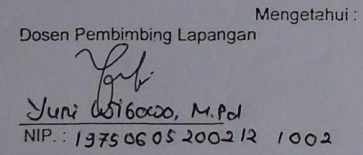 Mengetahui :
Dosen Pembimbing Lapangan
Yuni Wibowo, M.Pd
NIP. : 19750605 200212 1002